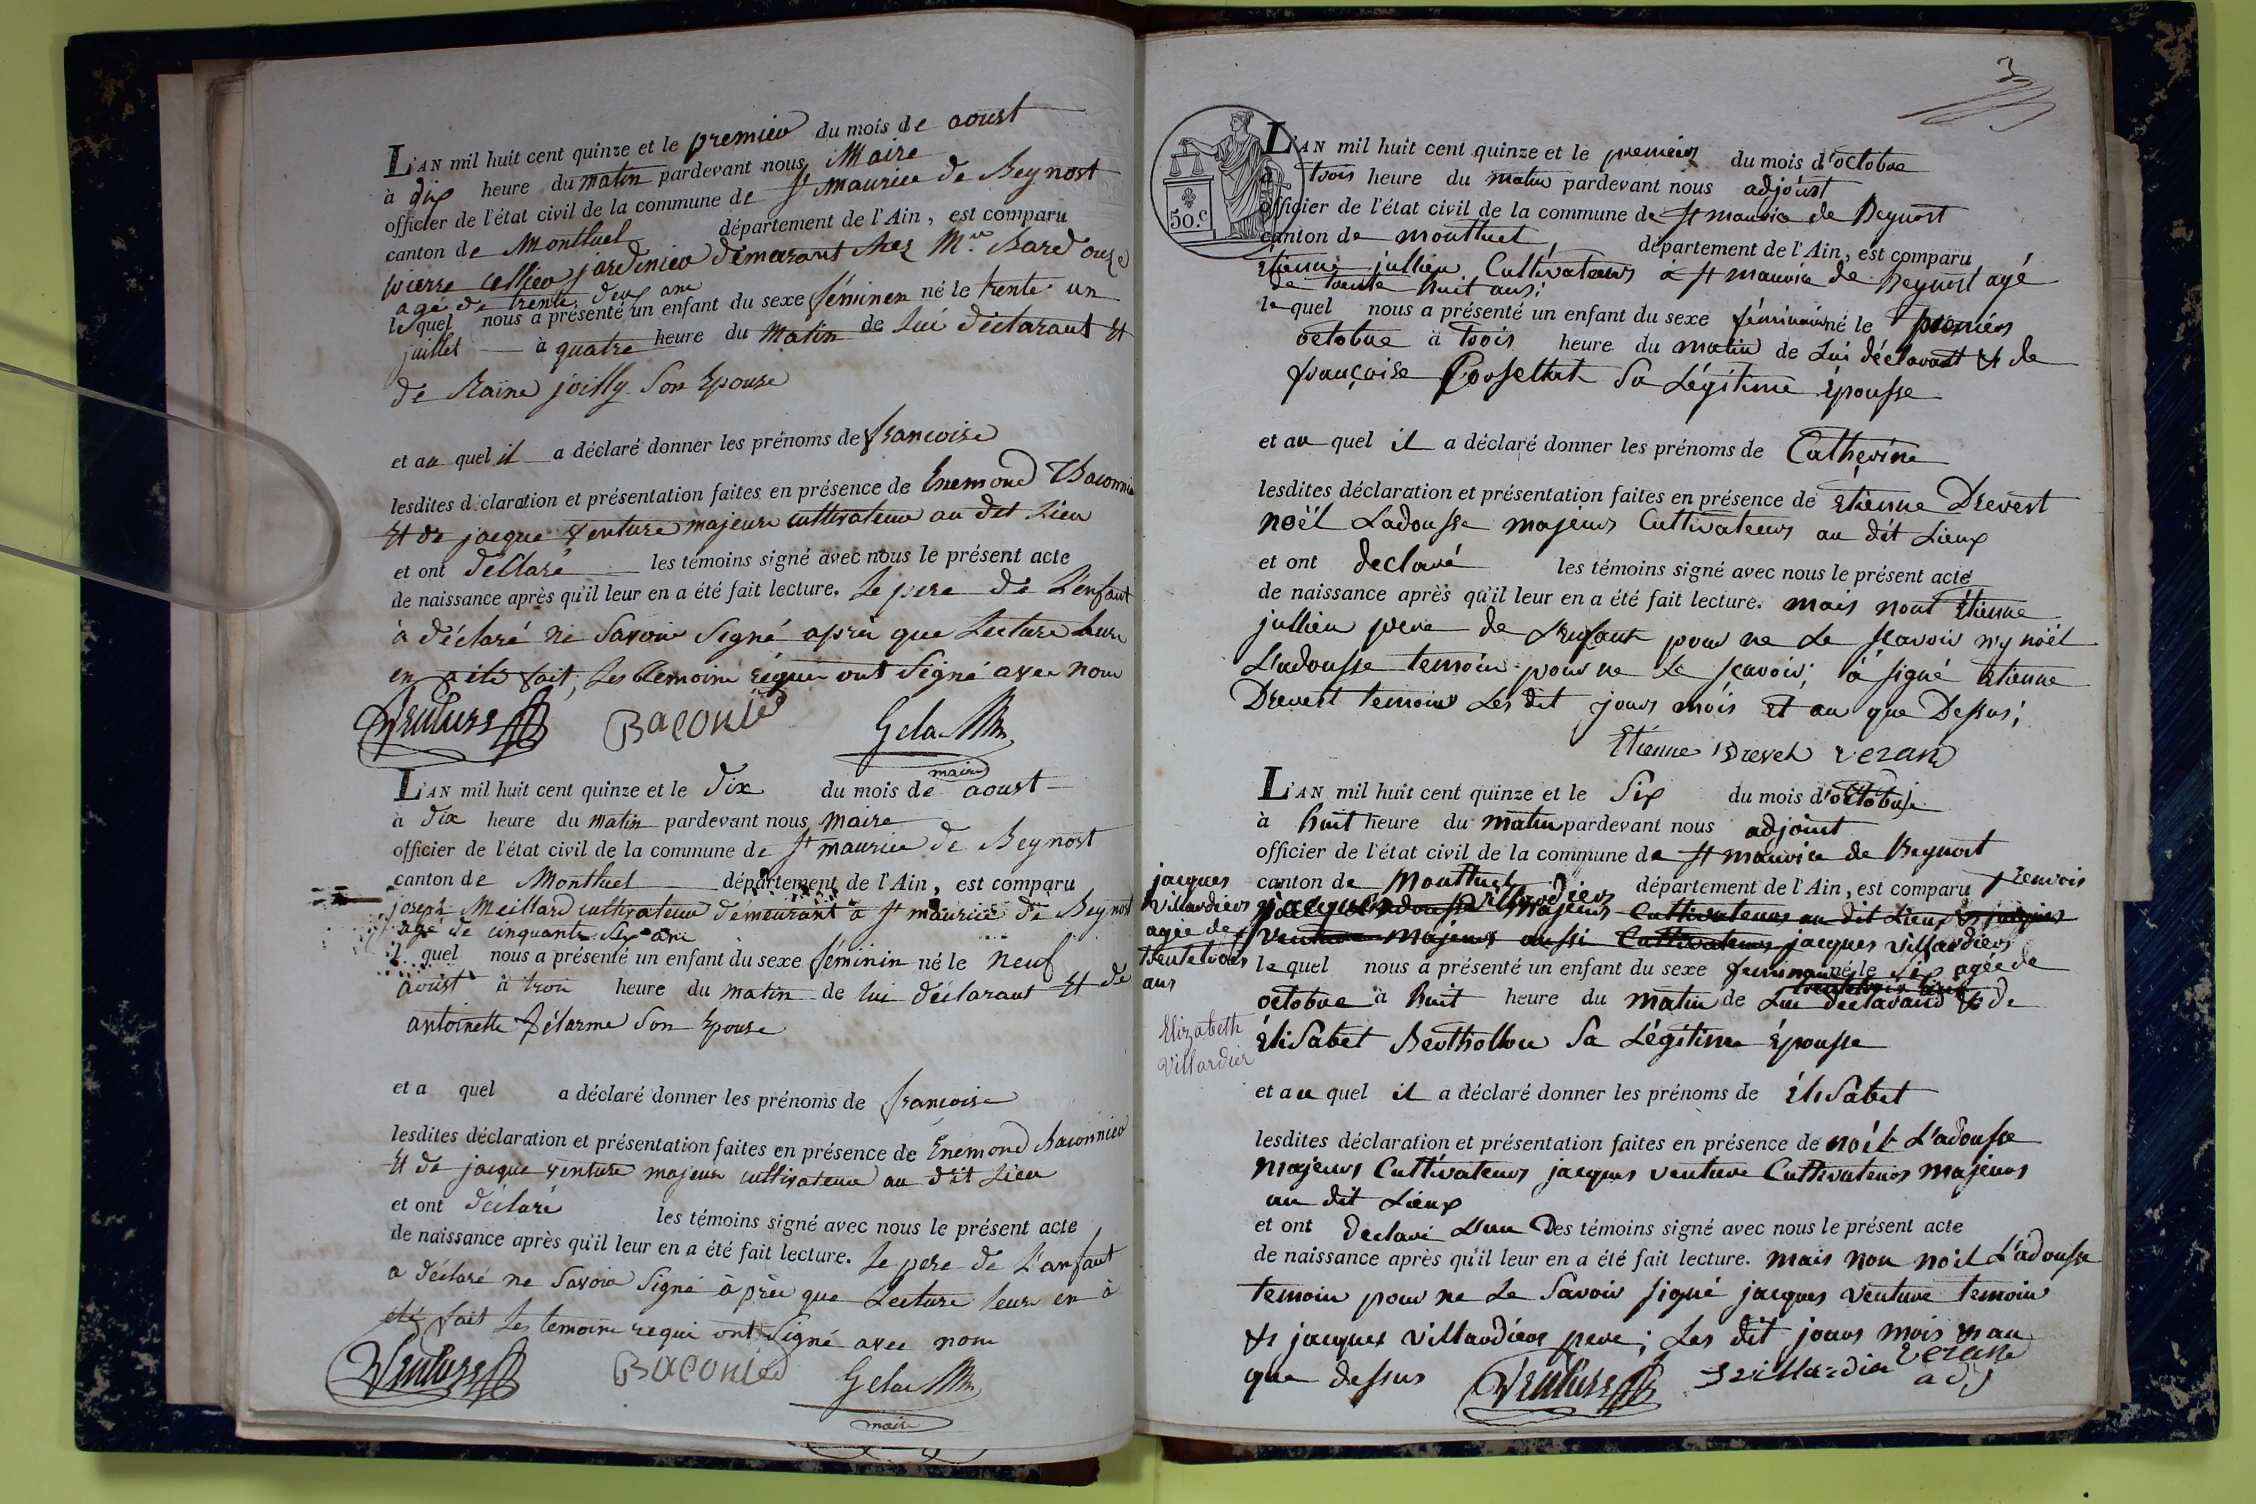 L'AN mil huit cent quinze et le premier du mois de aoust
à dix heure du matin pardevant nous Maire
officier de l'état civil de la commune de St maurice de Beynost
canton de Montluel département de l'Ain, est comparu
pierre cellier jardinier demeurant chez Mr.
agé de trente deux ans
le quel nous a présenté un enfant du sexe féminen né le trente un
juillet à quatre heure du matin de lui déclarant Et
de son Epouse
et au quel il a déclaré donner les prénoms de francoise
lesdites déclaration et présentation faites en présence de Enemond Baconnier
Et de jacque venture majeur cultivateur au dit Lieu
et ont déclaré les témoins signé avec nous le présent acte
de naissance après qu'il leur en a été fait lecture. Le pere de L'enfant
à déclaré ne Savoir Signé après que Lecture leur
en a été fait, Les temoins requi ont Signé avec nous
Venture Baconier Gela
maire
L'AN mil huit cent quinze et le dix du mois de aoust
à dix heure du matin pardevant nous maire
officier de l'état civil de la commune de St maurice de Beynost
canton de Montluel département de l'Ain, est comparu
joseph Meillard cultivateur demeurant a St maurice de Beynost
agé de cinquante six ans
l quel nous a présenté un enfant du sexe féminin né le neuf
aoust à trois heure du matin de lui déclarant Et de
antoinette son Epouse
et a quel a déclaré donner les prénoms de francoise
lesdites déclaration et présentation faites en présence de Enemond Baconnier
Et de jacque venture majeur cultivateur au dit Lieu
et ont déclaré les témoins signé avec nous le présent acte
de naissance après qu'il leur en a été fait lecture. Le pere de L'anfant
a déclaré ne Savoir Signé après que Lecture leur en à
été fait Les temoins requi ont Signé avec nous
Venture Baconier Gela
maire
3
50.c
L'AN mil huit cent quinze et le premiers du mois d'octobre
à trois heure du matin pardevant nous adjoint
officier de l'état civil de la commune de St maurice de Beynost
canton de montluel, département de l'Ain, est comparu
Etienne jullien Cultivateurs à St maurice de Beynost agé
de trente huit ans;
le quel nous a présenté un enfant du sexe féminin né le premiers
octobre à trois heure du matin de Lui déclarant et de
françoise Sa Légitime Épousse
et au quel il a déclaré donner les prénoms de Catherine
lesdites déclaration et présentation faites en présence de Etienne Drevest
noël Ladousse majeurs Cultivateurs au dit Lieux
et ont declaré les témoins signé avec nous le présent acte
de naissance après qu'il leur en a été fait lecture. mais nont Étienne
jullien pere de L'enfant pour ne Le sçavoir n'y noël
L'adousse temoin pour ne Le sçavoir; à signé Etienne
Drevest temoins Les dit jours mois et an que Dessus;
Etienne Drevet veran
L'AN mil huit cent quinze et le Six du mois d'octobre
à huit heure du matin pardevant nous adjoint
officier de l'état civil de la commune de St maurice de Beynost
canton de Montluel département de l'Ain, est comparu
jacques villardiers majeurs Cultivateurs au dit Lieux et jacques
venture majeurs aussi Cultivateurs jacques villardiers
jacques
villardiers
agée de
trente trois
ans
le quel nous a présenté un enfant du sexe feminain né le Six agée de
trente trois ans
octobre à huit heure du matin de Lui declarand et de
Elizabeth
Villardier
ÉliSabet Berthollon Sa Légitime Épousse
et au quel il a déclaré donner les prénoms de ÉliSabet
lesdites déclaration et présentation faites en présence de noël L'adousse
majeurs Cultivateurs jacques venture Cultivateurs majeurs
au dit Lieux
et ont declaré L'un Des témoins signé avec nous le présent acte
de naissance après qu'il leur en a été fait lecture. mais non noël L'adousse
temoin pour ne Le Savoir signé jacques venture temoins
et jacques villardiers pere; Les dit jours mois et an
que dessus Venture J villardier veran
adj